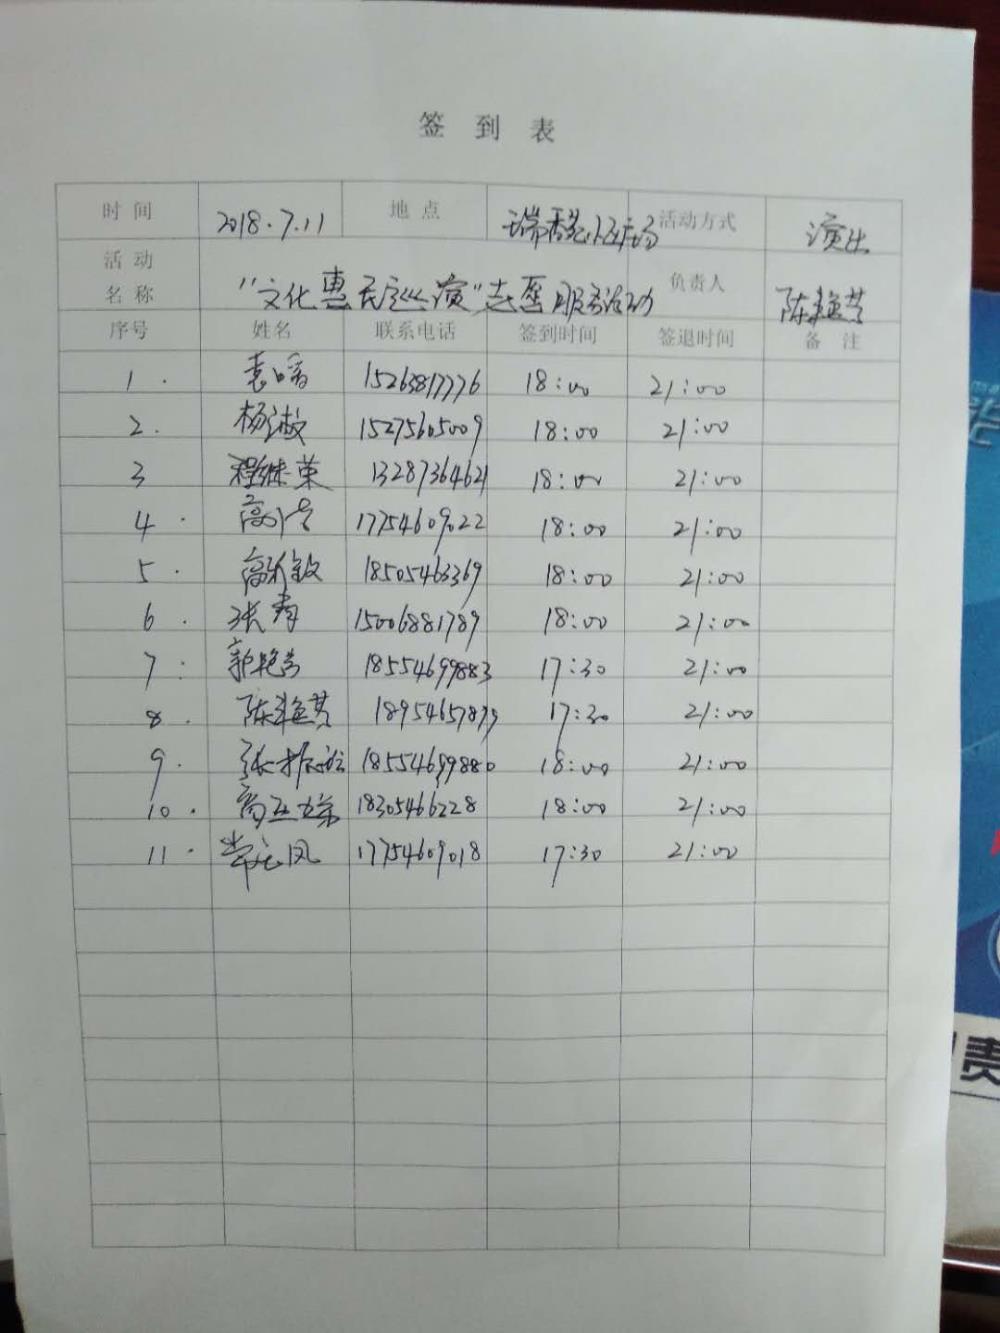 签 到 表
时 间 2018.7.11 地 点 瑞香苑小区广场 活动方式 演出
活 动 名 称 "文化惠民巡演"志愿服务活动 负责人 陈艳芬
序号 姓名 联系电话 签到时间 签退时间 备 注
1. 袁暖 15263817776 18:00 21:00
2. 杨淑 15275605009 18:00 21:00
3 程继荣 13287364621 18:00 21:00
4. 17754609022 18:00 21:00
5. 高敏 18505463369 18:00 21:00
6. 张青 15006881789 18:00 21:00
7. 郭艳芳 18554699883 17:30 21:00
8. 陈艳芬 18954657879 17:30 21:00
9. 张振 18554699880 18:00 21:00
10. 18305466228 18:00 21:00
11. 凤 17754609018 17:30 21:00
责